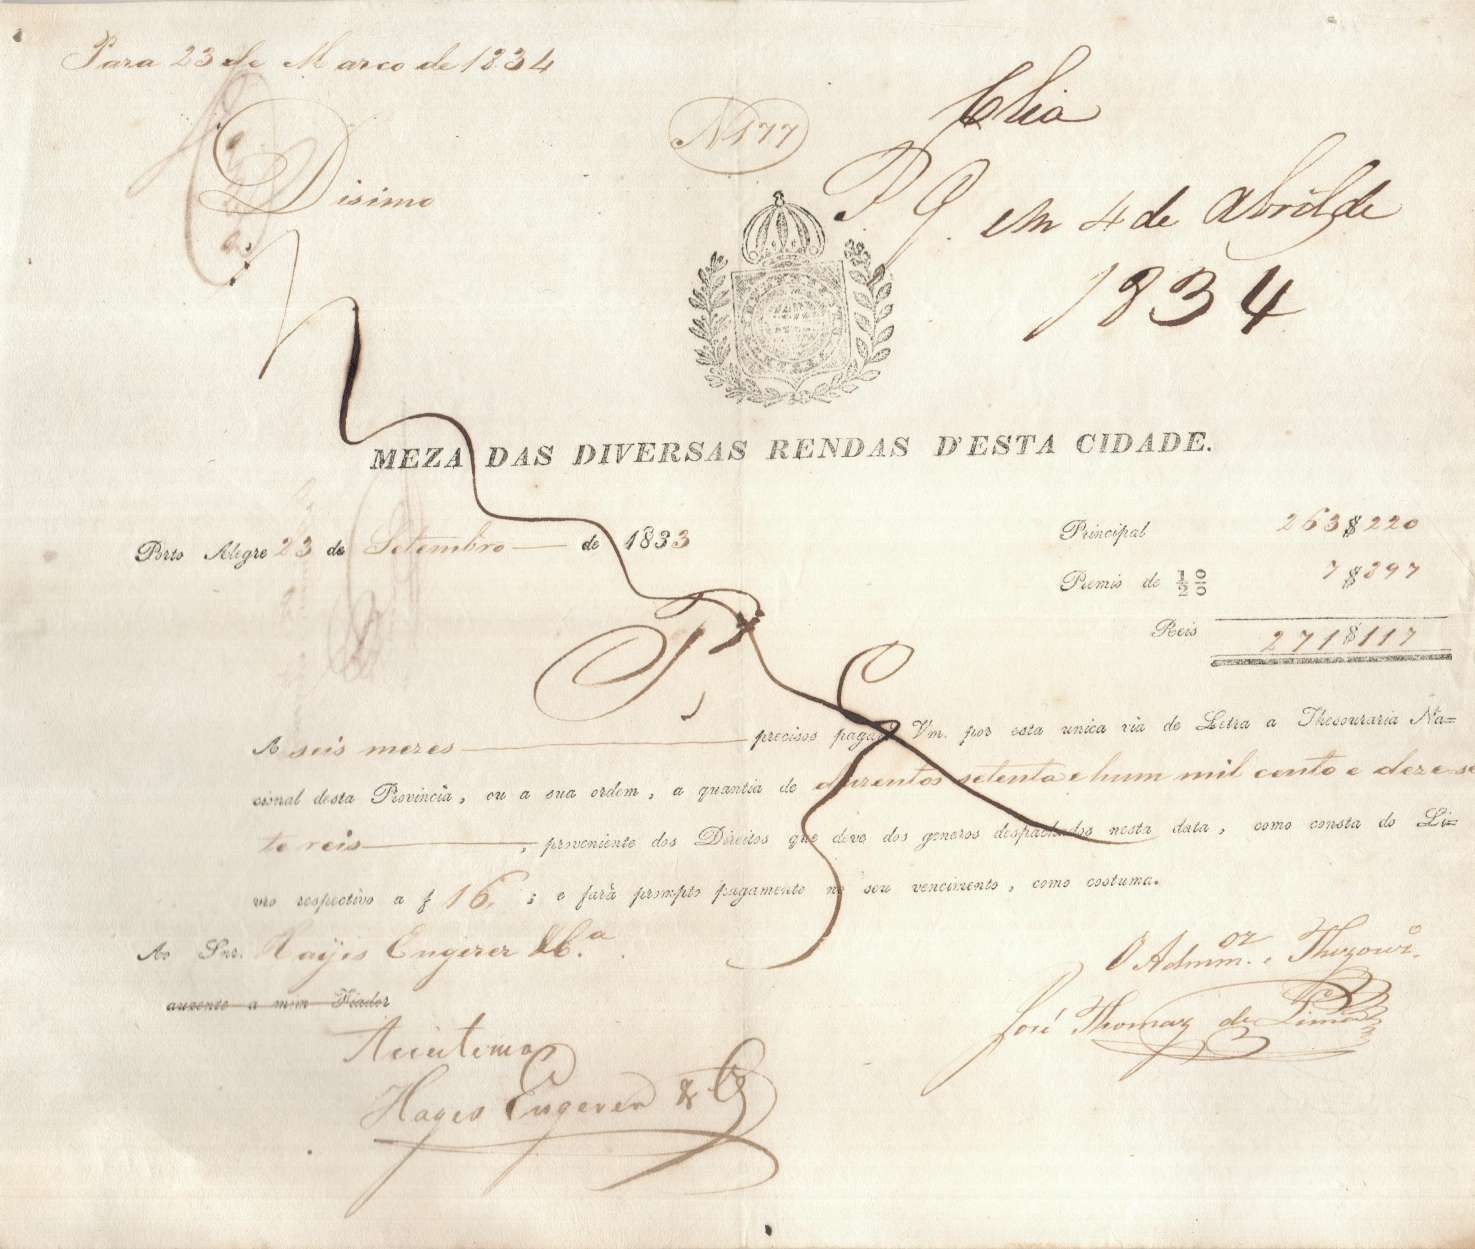 Para 23 de Marco de 1834
N 177
Disimo
P G. em 4 de Abril de
1834
MEZA DAS DIVERSAS RENDAS D'ESTA CIDADE.
Porto Alegre 23 de Setembro de 1833
Principal 263$220
Premio de 1/2 % 7$897
Reis 271$117
A seis mezes precisos pagará Vm. por esta unica via de Letra a Thesouraria Na=
cional desta Provincia, ou a sua ordem, a quantia de duzentos setenta e hum mil cento e deze se
te reis, proveniente dos Direitos que deve dos generos despachados nesta data, como consta do Li=
vro respectivo a f 16, ; e fará prompto pagamento no seu vencimento, como costuma.
Ao Snr. Hayes Engerer & Ca.
auzente a mim Fiador
O Admmor. e Thezouro.
José Thomaz de Lima
Aceitemos
Hayes Engerer & C